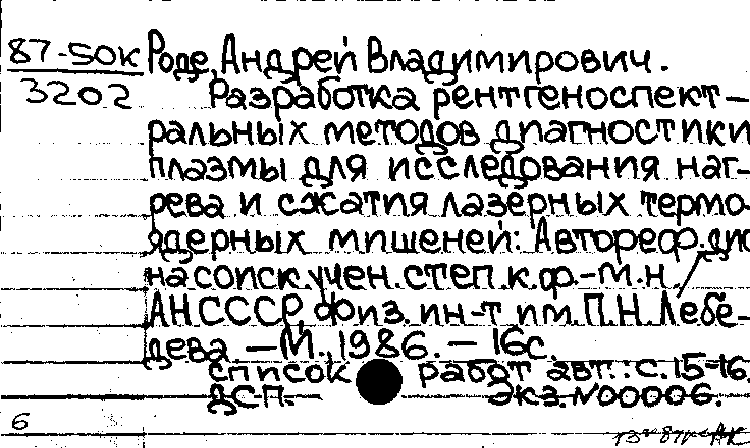 87-50К Роде, Андрей Владимирович.
3202 Разработка рентгеноспект-
ральных методов диагностики
плазмы для исследования наг-
рева и сжатия лазерных термо-
ядерных мишеней: Автореф. дис
на соиск. учен. степ. к.ф.-м.н. /
АН СССР, Физ. ин-т им. П.Н. Лебе-
дева. — М., 1986. — 16с.
список работ авт.: с. 15-16.
ДСП. Экз. N00006.
6